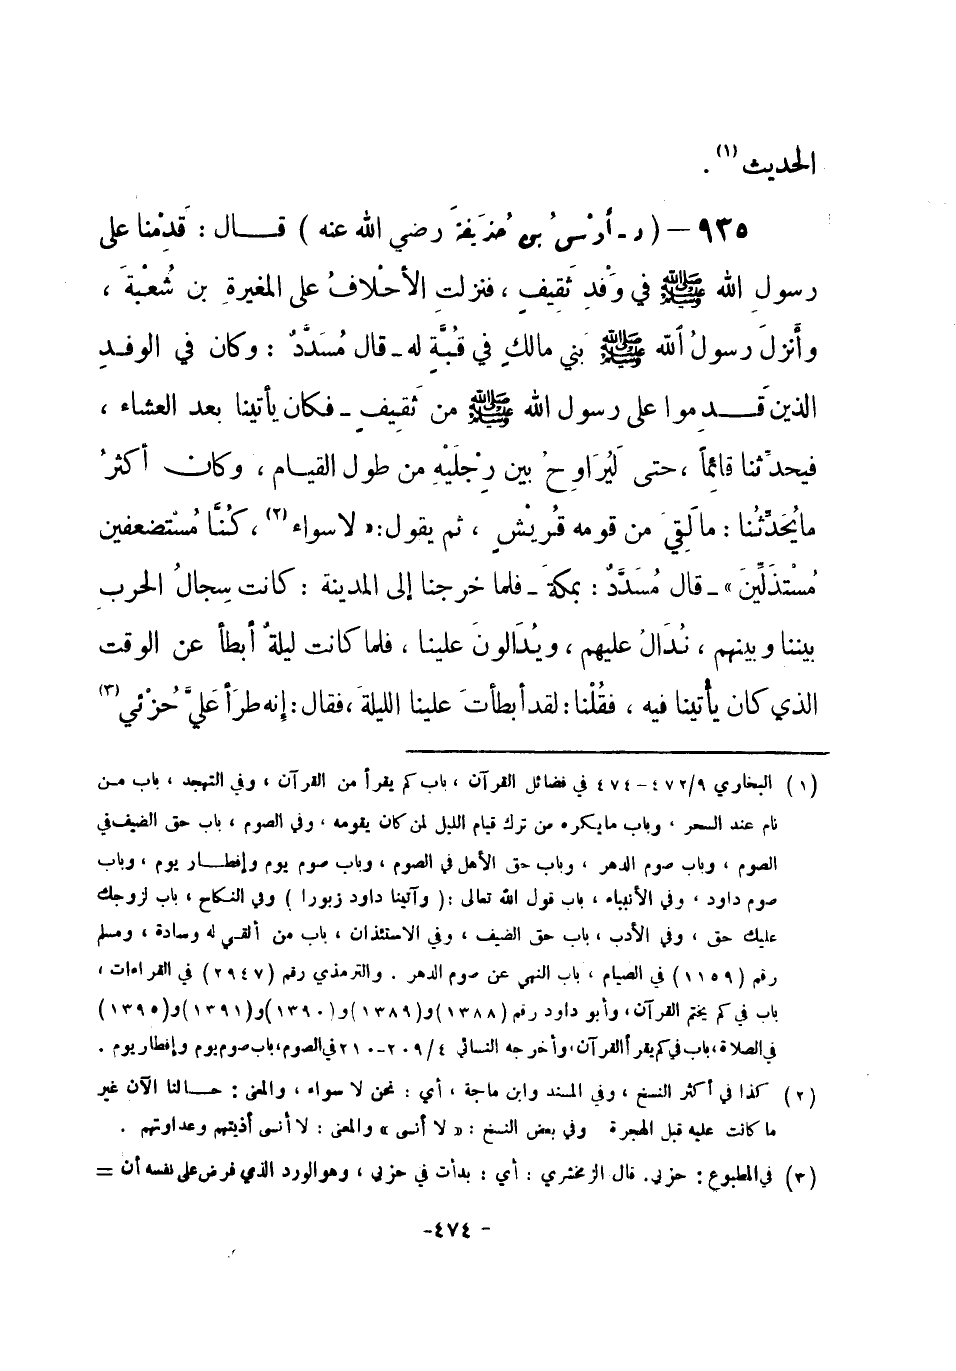 الحديث (١) .
٩٣٥ – ( د ـ أوْسُ بن حُذَيفةَ رضي الله عنه ) قـــال : قَدِمْنا على
رسولِ الله ﷺ في وَفْدِ ثَقِيفٍ ، فنزلتِ الأحْلافُ على المغيرةِ بن شُعْبةَ ،
وأَنزلَ رسولُ ألله ﷺ بَني مالكٍ في قُبَّةٍ له ـ قال مُسَدَّدٌ : وكان في الوفدِ
الذين قَـــدِموا على رسول الله ﷺ من ثَقِيفٍ ـ فكان يأتينا بعد العشاء ،
فيحدِّثنا قائِماً ، حتى لَيُرَاوِحُ بين رِجْلَيْهِ من طول القيـام ، وكان أكثرُ
ما يُحَدِّثُنا : ما لَقِيَ من قومه قُريْشٍ ، ثم يقول : « لا سواء (٢) ، كُنَّا مُسْتضعفين
مُسْتذَلِّينَ » ـ قال مُسَدَّدٌ : بمكةَ ـ فلما خرجنا إلى المدينة : كانت سِجالُ الحربِ
بيننا وبينهم ، نُدَالُ عليهم ، ويُدَالونَ علينا ، فلما كانت ليلةٌ أبطأ عن الوقت
الذي كان يأتينا فيه ، فقُلْنا : لقد أبطأتَ علينا الليلةَ ، فقال : إنه طرَأ عَليَّ حُزْئي (٣)
(١) البخاري ٤٧٢/٩ – ٤٧٤ في فضائل القرآن ، باب كم يقرأ من القرآن ، وفي التهجد ، باب مـن
نام عند السحر ، وباب ما يكره من ترك قيام الليل لمن كان يقومه ، وفي الصوم ، باب حق الضيف في
الصوم ، وباب صوم الدهر ، وباب حق الأهل في الصوم ، وباب صوم يوم وإفطـــار يوم ، وباب
صوم داود ، وفي الأنبياء ، باب قول الله تعالى : ( وآتينا داود زبورا ) وفي النكاح ، باب لزوجك
عليك حق ، وفي الأدب ، باب حق الضيف ، وفي الاستئذان ، باب من ألقي له وسادة ، ومسلم
رقم (١١٥٩) في الصيام ، باب النهي عن صوم الدهر . والترمذي رقم (٢٩٤٧) في القراءات ،
باب في كم يختم القرآن ، وأبو داود رقم (١٣٨٨) و(١٣٨٩) و(١٣٩٠) و(١٣٩١) و(١٣٩٥)
في الصلاة ، باب في كم يقرأ القرآن ، وأخرجه النسائي ٢٠٩/٤ – ٢١٠ في الصوم ، باب صوم يوم وإفطار يوم .
(٢) كذا في أكثر النسخ ، وفي المسند وابن ماجة ، أي : نحن لا سواء ، والمعنى : حـــالنا الآن غير
ما كانت عليه قبل الهجرة وفي بعض النسخ : « لا أنسى » والمعنى : لا أنسى أذيتهم وعداوتهم .
(٣) في المطبوع : حزبي . قال الزمخشري : أي : بدأت في حزبي ، وهو الورد الذي فرض على نفسه أن =
- ٤٧٤-